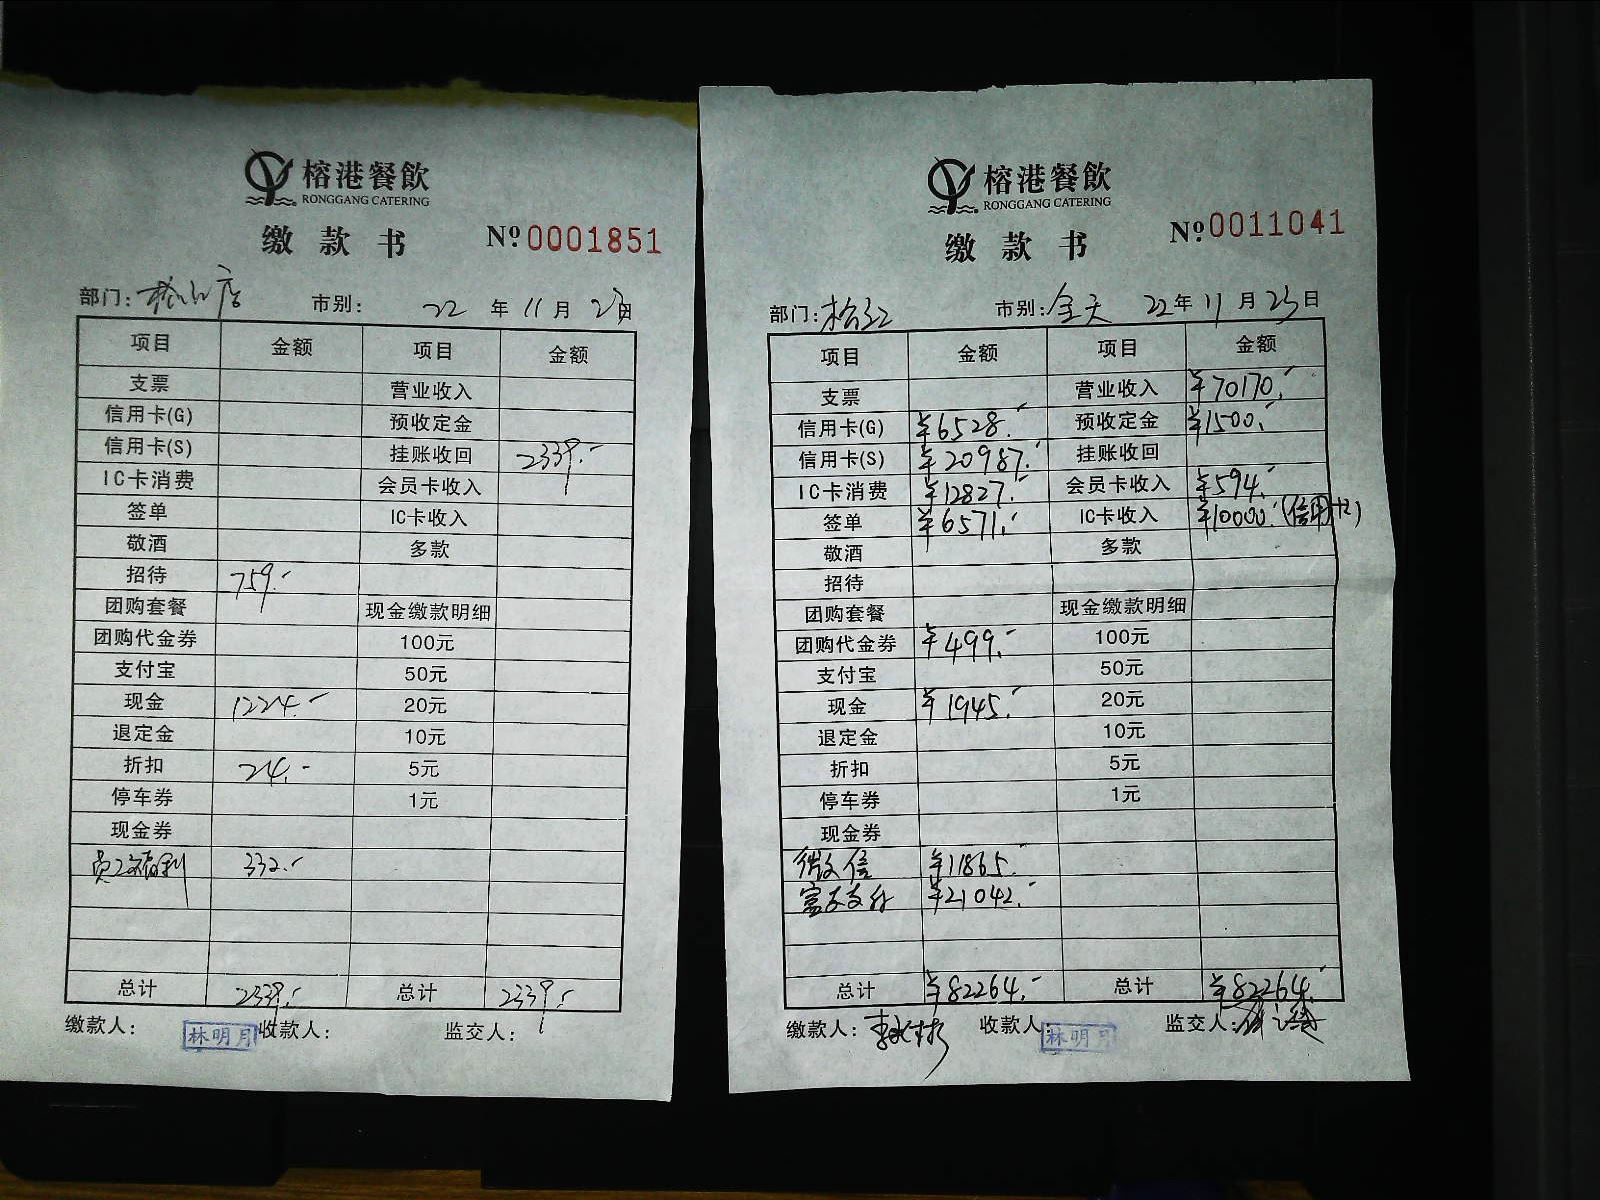 榕港餐飲
RONGGANG CATERING
缴款书 № 0001851
部门: 店 市别: 22 年 11 月 23 日
项目 金额 项目 金额
支票 营业收入
信用卡(G) 预收定金
信用卡(S) 挂账收回 2339.-
IC卡消费 会员卡收入
签单 IC卡收入
敬酒 多款
招待 759.-
团购套餐 现金缴款明细
团购代金券 100元
支付宝 50元
现金 1224.- 20元
退定金 10元
折扣 24.- 5元
停车券 1元
现金券
员工福利 332.-
总计 2339.- 总计 2339.-
缴款人: 林明月 收款人: 监交人:
榕港餐飲
RONGGANG CATERING
缴款书 № 0011041
部门: 市别: 全天 22 年 11 月 23 日
项目 金额 项目 金额
支票 营业收入 ¥70170.-
信用卡(G) ¥6528.- 预收定金 ¥1500.-
信用卡(S) ¥20987.- 挂账收回
IC卡消费 ¥12827.- 会员卡收入 ¥594.-
签单 ¥6571.- IC卡收入 ¥10000.-(信用卡)
敬酒 多款
招待
团购套餐 现金缴款明细
团购代金券 ¥499.- 100元
支付宝 50元
现金 ¥1945.- 20元
退定金 10元
折扣 5元
停车券 1元
现金券
微信 ¥11865.-
富友支付 ¥21042.-
总计 ¥82264.- 总计 ¥82264.-
缴款人: 收款人: 林明月 监交人: